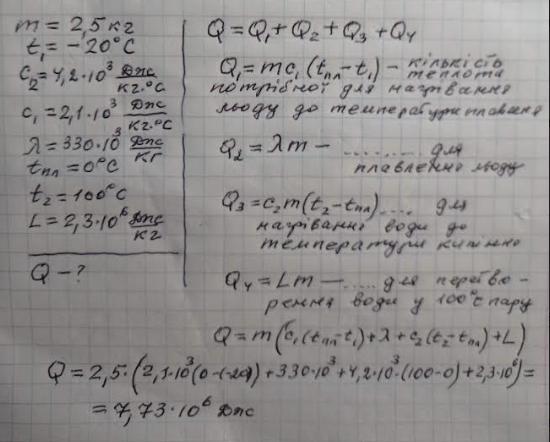 m = 2,5 кг
t₁ = -20°C
c₂ = 4,2·10³ Дж/кг·°C
c₁ = 2,1·10³ Дж/кг·°C
λ = 330·10³ Дж/кг
tпл = 0°C
t₂ = 100°C
L = 2,3·10⁶ Дж/кг
Q - ?
Q = Q₁ + Q₂ + Q₃ + Q₄
Q₁ = mc₁(tпл - t₁) - кількість
теплота
потрібної для нагрівання
льоду до температури плавання
Q₂ = λm - ......... для
плавлення льоду
Q₃ = c₂m(t₂ - tпл) .... для
нагрівання води до
температури кипіння
Q₄ = Lm - ..... для перетво-
рення води у 100°C пару
Q = m(c₁(tпл - t₁) + λ + c₂(t₂ - tпл) + L)
Q = 2,5·(2,1·10³(0-(-20)) + 330·10³ + 4,2·10³·(100-0) + 2,3·10⁶) =
= 7,73·10⁶ Дж